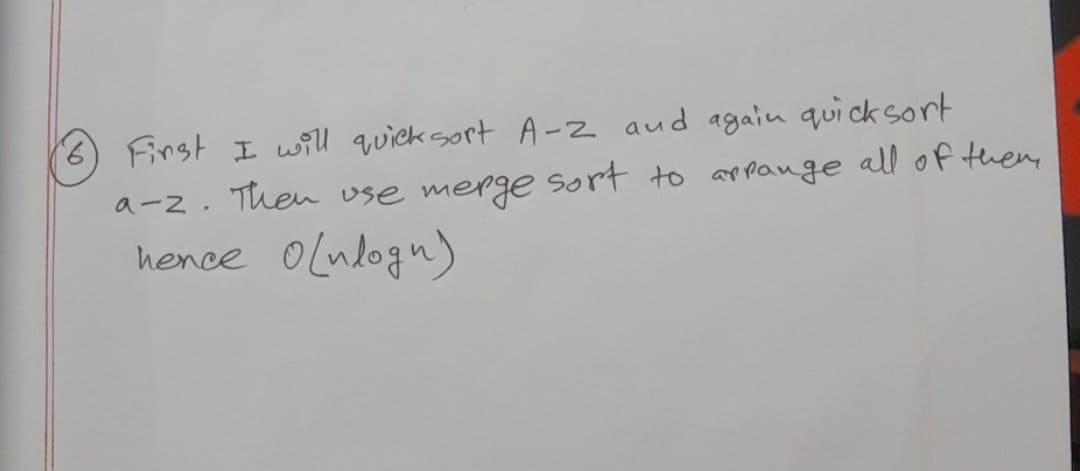 6 First I will quick sort A-Z and again quicksort
a-z. Then use merge sort to arrange all of them
hence O(nlogn)